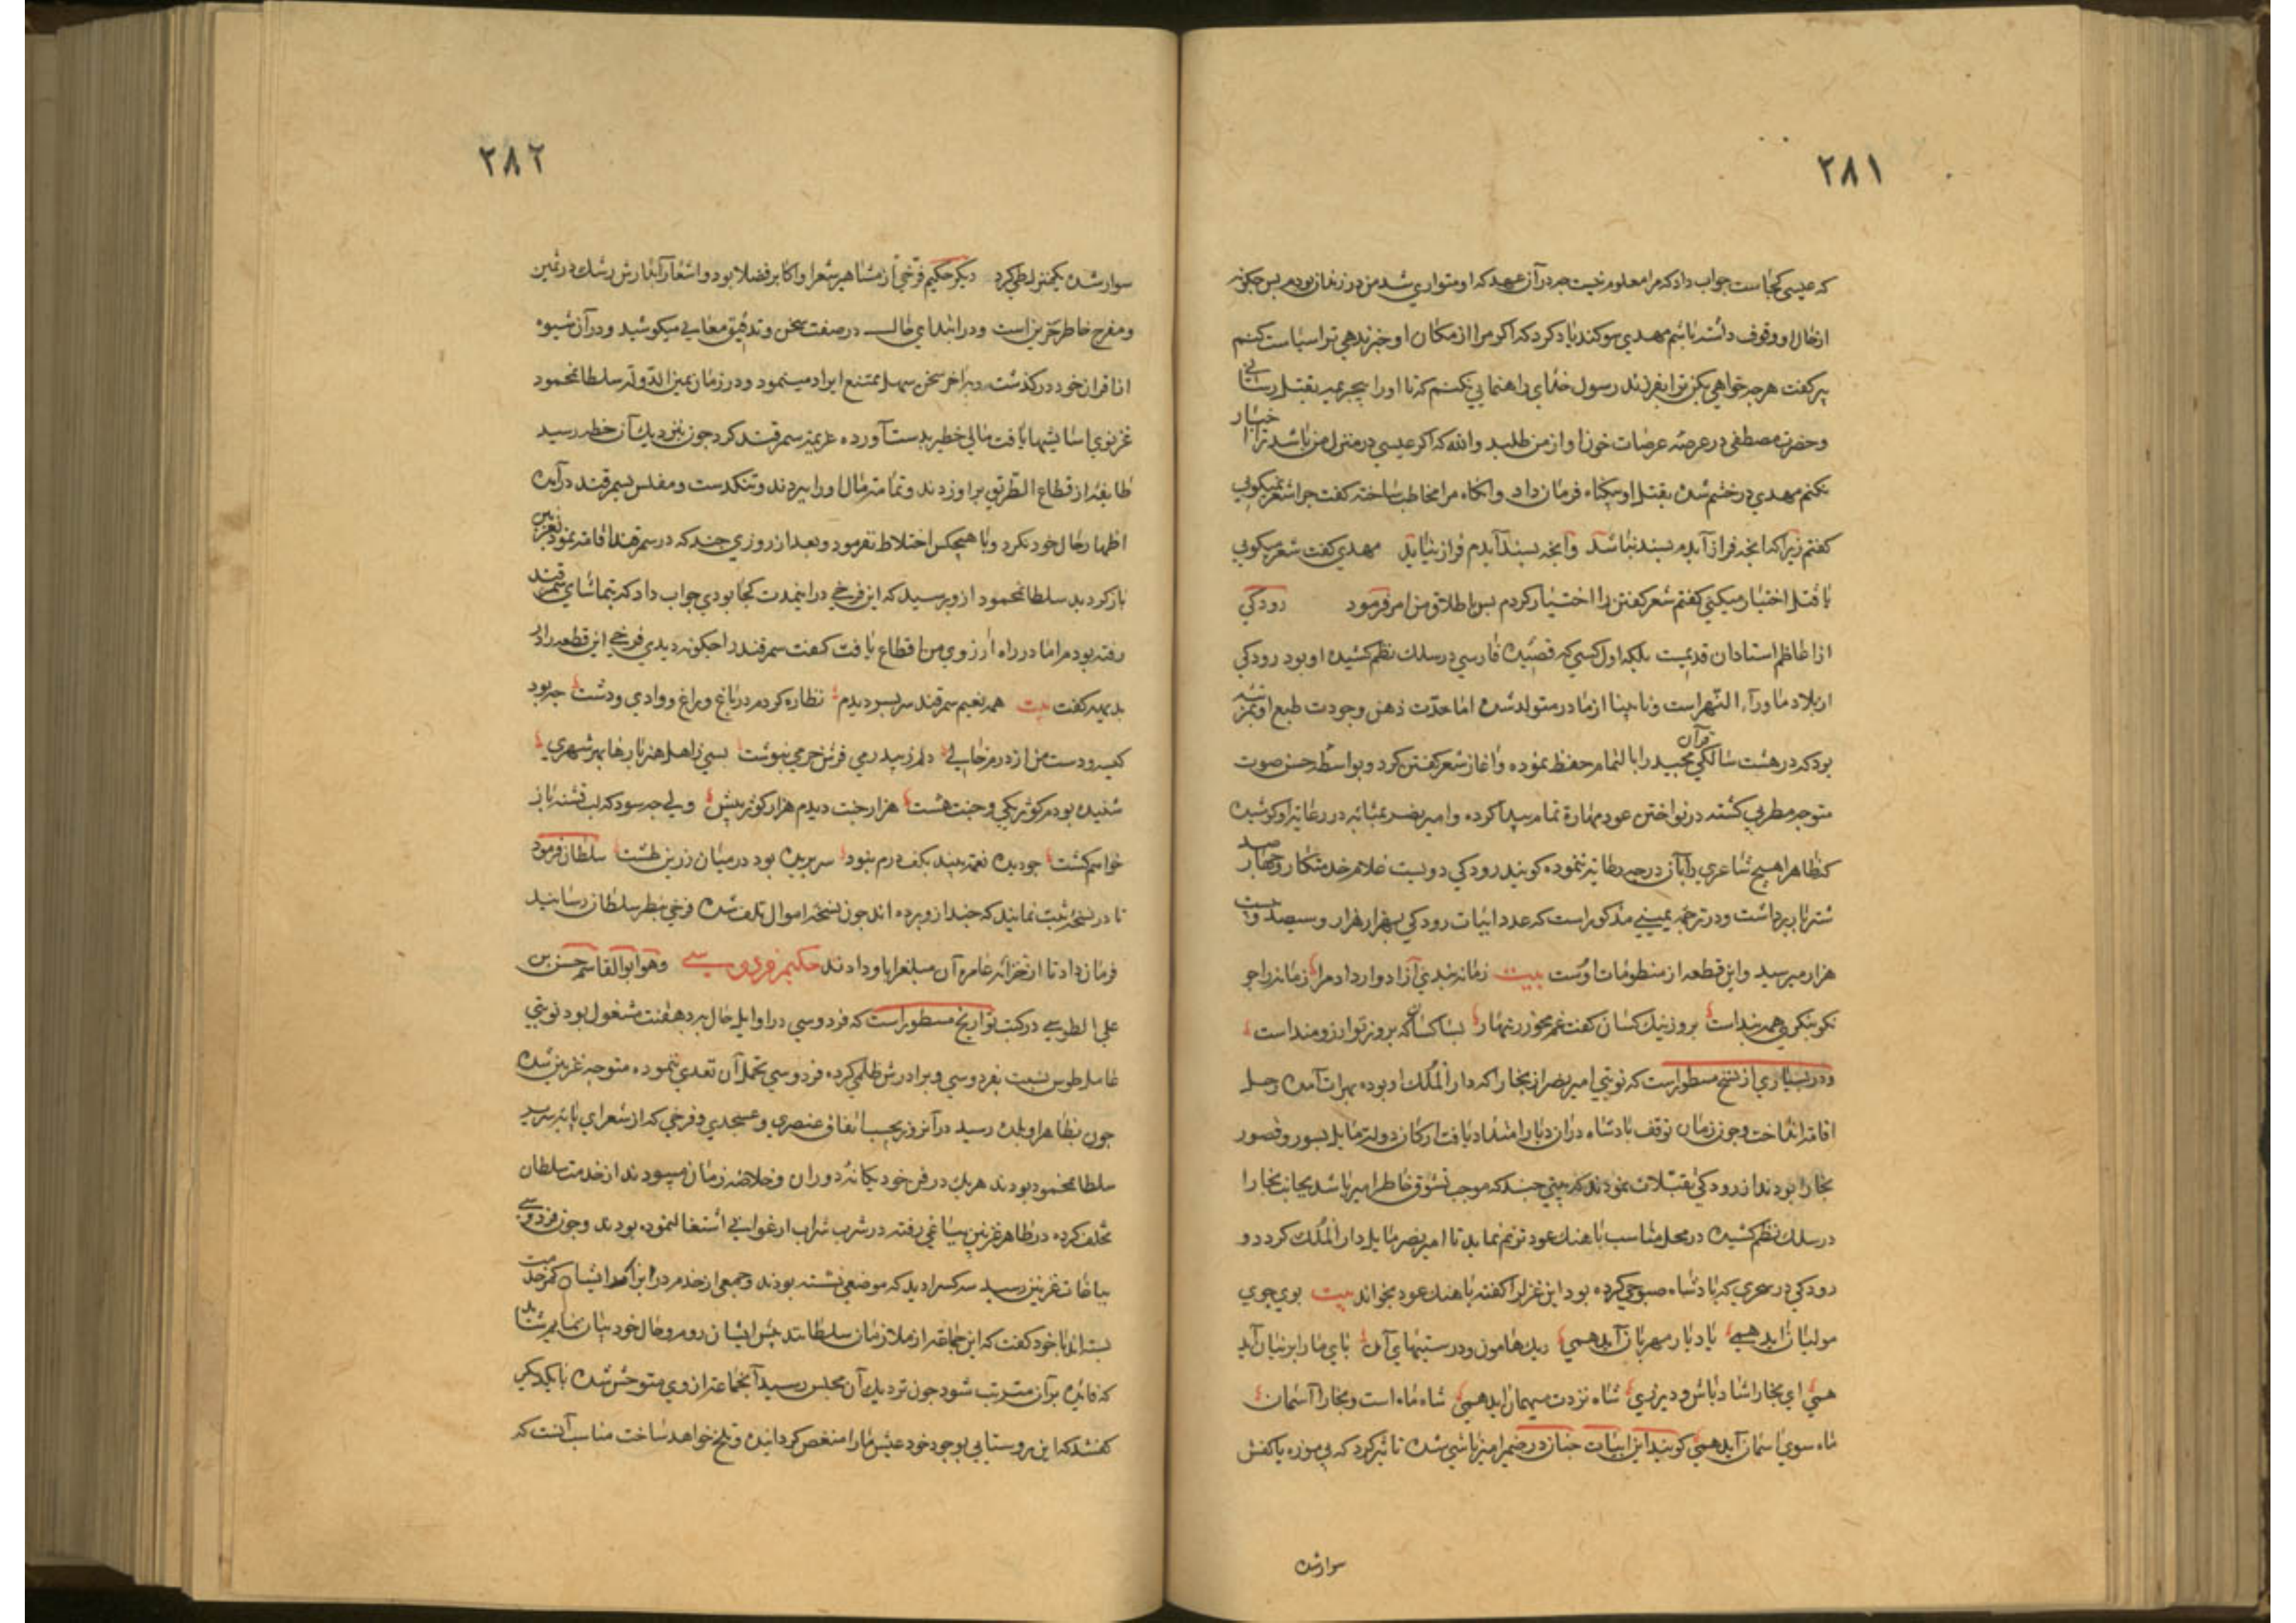 ٢٨١
که عیسی کجاست جواب داد که مرا معلوم نیست چه در آن عهد که او متواری شد من در زندان بودم پس چکونه
از حال او وقوف داشته باشم مهدی سوکند یاد کرد که اکر مرا از مکان او خبر ندهی ترا سیاست کنم
پیر کفت هر چه خواهی بکن ترا بفرزند رسول خدای راهنمایی نکنم که تا او را بقتل رسانی
و حضرت مصطفی در عرصه عرصات خون او از من طلبد والله که اکر عیسی در منزل من باشد ترا اخبار
نکنم مهدی در خشم شده بقتل او فرمان داد و آنکاه مرا مخاطب ساخته کفت چرا شعر نمیکویی
کفتم زیرا که آنچه فراز آیدم پسند نباشد و آنچه پسند آیدم فراز نیاید مهدی کفت شعر میکویی
یا قتل اختیار میکنی کفتم شعر کفتن را اختیار کردم پس باطلاق من امر فرمود رودکی
از اعاظم استادان قدیمست بلکه اول کسی که قصیده فارسی در سلک نظم کشیده او بود رودکی
از بلاد ماوراء النهر است و نابینا از مادر متولد شده اما حدّت ذهن و جودت طبع او بمرتبه
بود که در هشت سالکی قرآن مجید را بالتمام حفظ نموده و آغاز شعر کفتن کرد و بواسطه حسن صوت
متوجه مطربی کشته در نواختن عود مهارة تمام پیدا کرده و امیر نصر بمثابه در رعایة او کوشیده
که ظاهرا هیچ شاعری را بآن درجه رعایة ننموده کویند رودکی دویست غلام خدمتکار و چهار صد
شتر بار برداشت و در ترجمه یمینی مذکور است که عدد ابیات رودکی بهزار هزار و سیصد و بیست
هزار میرسید و این قطعه از منظومات اوست بیت زمانه پندی آزادوار داد مرا زمانه را چو
نکو بنکری همه پند است بروز نیک کسان کفت غم مخور زنهار بسا کسان که بروز تو ارزومند است
و در بسیاری از نسخ مسطور است که نوبتی امیر نصر از بخارا که دار الملک او بوده بهرات آمده رحل
اقامة انداخت و چون زمان توقف پادشاه در ان دیار امتداد یافت ارکان دولت مایل بسور و قصور
بخارا بودند از رودکی تقبلات نمودند که بیتی چند که موجب تشوق خاطر امیر باشد بجانب بخارا
در سلک نظم کشیده در محل مناسب باهنک عود ترنم نماید تا امیر نصر مایل دار الملک کردد و
رودکی در سحری که پادشاه صبوحی کرده بود این غزل را کفته باهنک عود بخواند بیت بوی جوی
مولیان آید همی یاد یار مهربان آید همی ریک هامون و درستیهای آن پای ما را پرنیان آید
همی ای بخارا شاد باش و دیر زی شاه نزدت میهمان آید همی شاه ماه است و بخارا آسمان
ماه سوی آسمان آید همی کویند این ابیات چنان در ضمیر امیر تاثیر کرد که بی موزه یا کفش
سوار شده
٢٨٢
سوار شده یکمنزل طی کرد دیکر حکیم فرّخی از مشاهیر شعرا و اکابر فضلا بود و اشعار آبدارش رشک در ثمین
و مفرح خاطر حزین است و در ابتدای حال در صفت سخن و تدقیق معانی میکوشید و در آن شیوه
از اقران خود در کذشت و در آخر سخن سهل ممتنع ایراد مینمود و در زمان یمین الدّوله سلطان محمود
غزنوی آسایشها یافت مالی خطیر بدست آورده عزیمة سمرقند کرد چون بنزدیک آن خطه رسید
طایفه از قطاع الطریق برو زدند و تمامة مال او را ببردند و تنکدست و مفلس بسمرقند درآمده
اظهار حال خود نکرد و با هیچکس اختلاط نفرمود و بعد از روزی چند که در سمرقند اقامة نمود بغزنین
باز کردید سلطان محمود ازو پرسید که ای فرخی در اینمدت کجا بودی جواب داد که بتماشای سمرقند
رفته بودم اما در راه ارزوی من اقطاع یافت کفت سمرقند را چکونه دیدی فرخی این قطعه را در
بدیهه کفت بیت همه نعیم سمرقند سر بسر دیدم نظاره کردم در باغ و راغ و وادی و دشت چو بود
کیسه و دست من از درم خالی دلم ز امید فرش خرمی بنوشت بسی ز اهل هنر بارها بهر شهری
شنیده بودم کوثر یکی و جنت هشت هزار جنت دیدم هزار کوثر بیش ولی چه سود که لب تشنه باز
خواهم کشت چو دیده نعمة بیند بکف درم نبود سر بریده بود در میان زرین طشت سلطان فرمود
تا در نسخه ثبت نمایند که چند ازو برده اند چون نسخه اموال تلف شده فرخی بنظر سلطان رسانید
فرمان داد تا از خزانه عامره آن مبلغ را باو دادند حکیم فردوسی وهو ابوالقاسم حسن بن
علی الطوسی در کتب تواریخ مسطور است که فردوسی در اوایل حال بدهقنت مشغول بود نوبتی
عامل طوس نسبت بفردوسی و برادرش ظلمی کرده فردوسی تحمل آن تعدی ننموده متوجه غزنین شده
چون بظاهر او بلده رسید در آنروز بحسب اتفاق عنصری و عسجدی و فرخی که از شعرای پایه سریر
سلطان محمود بودند هر یک در فن خود یکانهٔ دوران و خلاصه زمان میبودند از خدمت سلطان
تخلف کرده در ظاهر غزنین بباغی رفته در شرب شراب ارغوانی اشتغال نموده بودند و چون فردوسی
بباغات غزنین رسید سه کس را دید که موضعی نشسته بودند و جمعی از خدم در برابر ایشان کمر خدمت
بسته اند با خود کفت که این جماعة از ملازمان سلطانند پیش ایشان روم و حال خود بیان نمایم شاید
که فایده بر آن مترتب شود چون نزدیک آن مجلس رسید آنجماعة از وی متوحش شده با یکدیکر
کفتند که این روستایی بوجود خود عیش ما را منغص کردانیده و تلخ خواهد ساخت مناسب آنست که